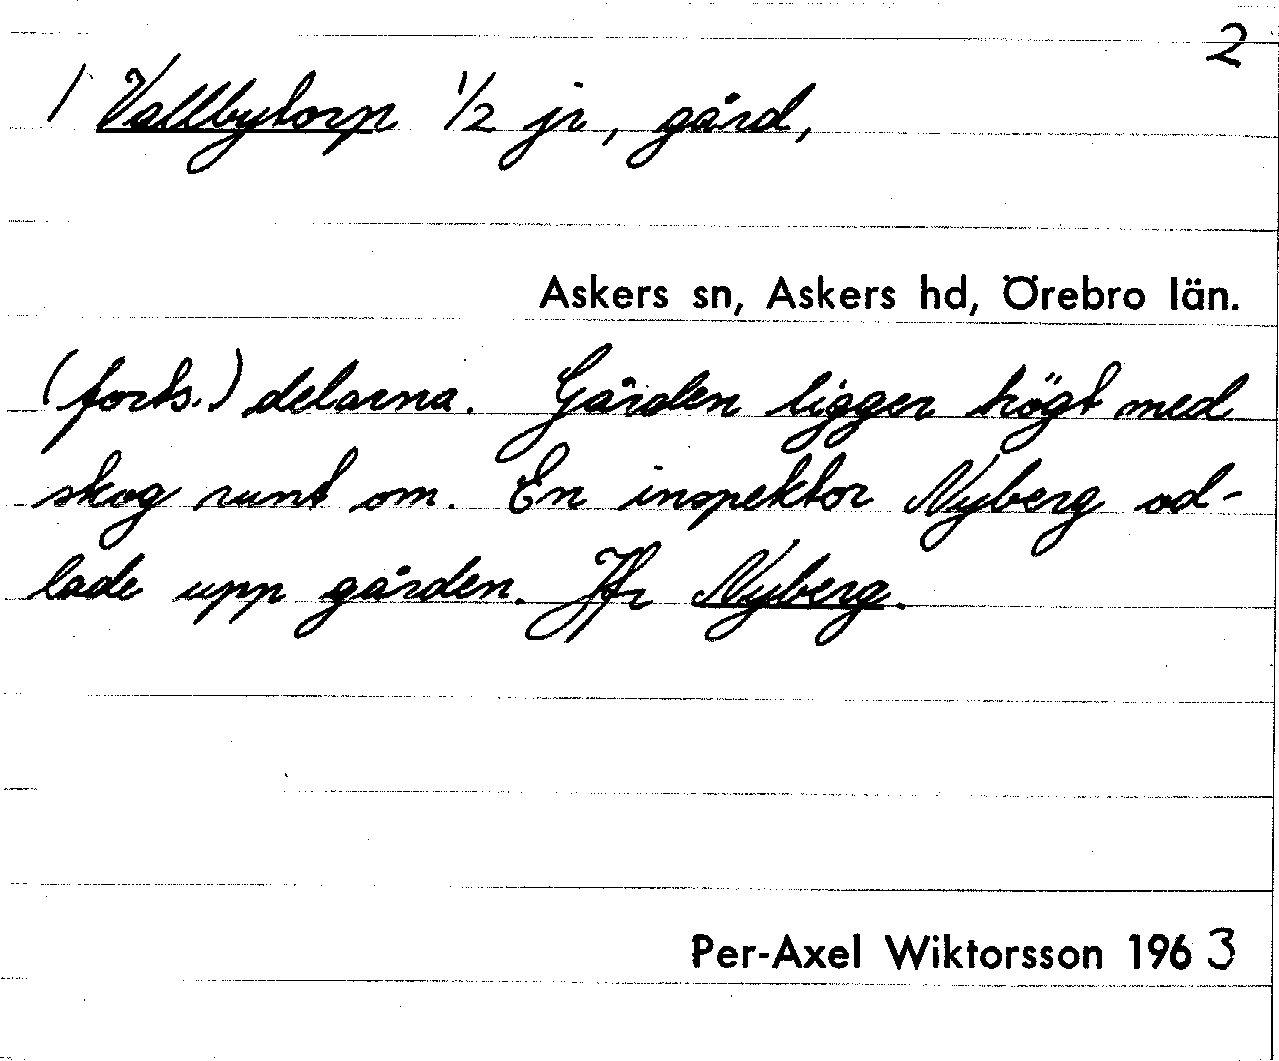 2
/ Vallbytorp 1/2 jr, gård,
Askers sn, Askers hd, Örebro län.
(forts.) delarna. Gården ligger högt med
skog runt om. En inspektor Nyberg od-
lade upp gården. Jfr Nyberg.
Per-Axel Wiktorsson 1963